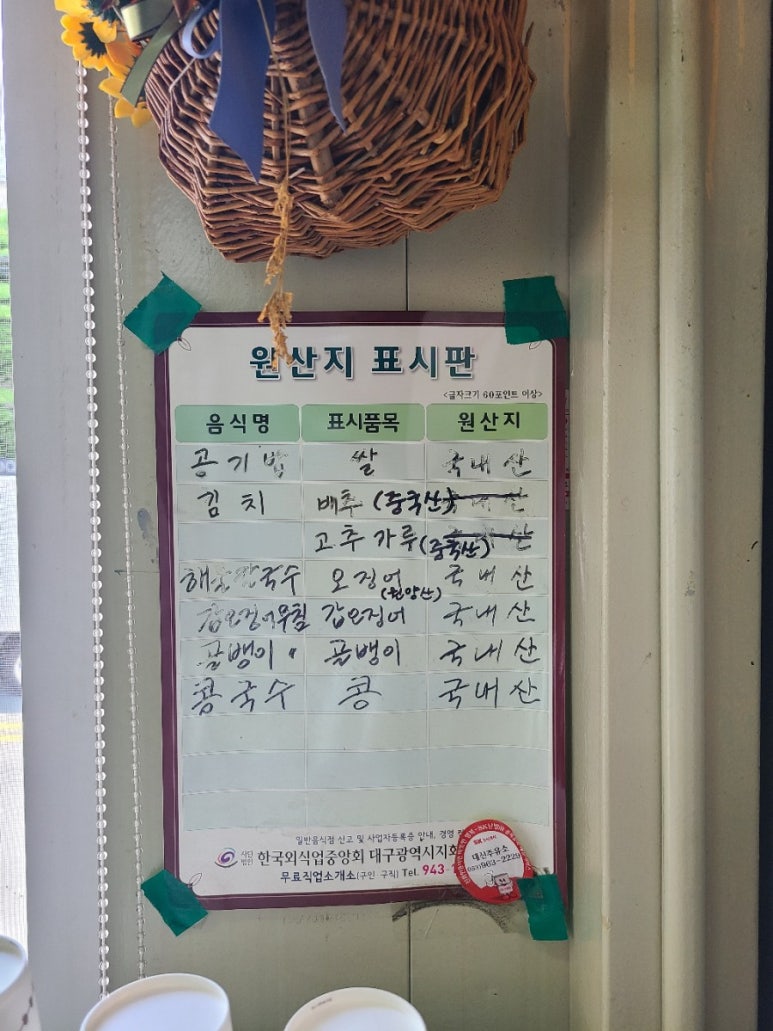 원산지 표시판
<글자크기 60포인트 이상>
음식명 표시품목 원산지
공기밥 쌀 국내산
김치 배추 (중국산) 국내산
고추가루 (중국산) 국내산
해물칼국수 오징어 (원양산) 국내산
갑오징어무침 갑오징어 국내산
골뱅이 골뱅이 국내산
콩국수 콩 국내산
일반음식점 신고 및 사업자등록증 안내, 경영
사단법인 한국외식업중앙회 대구광역시지회
무료직업소개소(구인·구직) Tel. 943-
대진주유소
963-2229